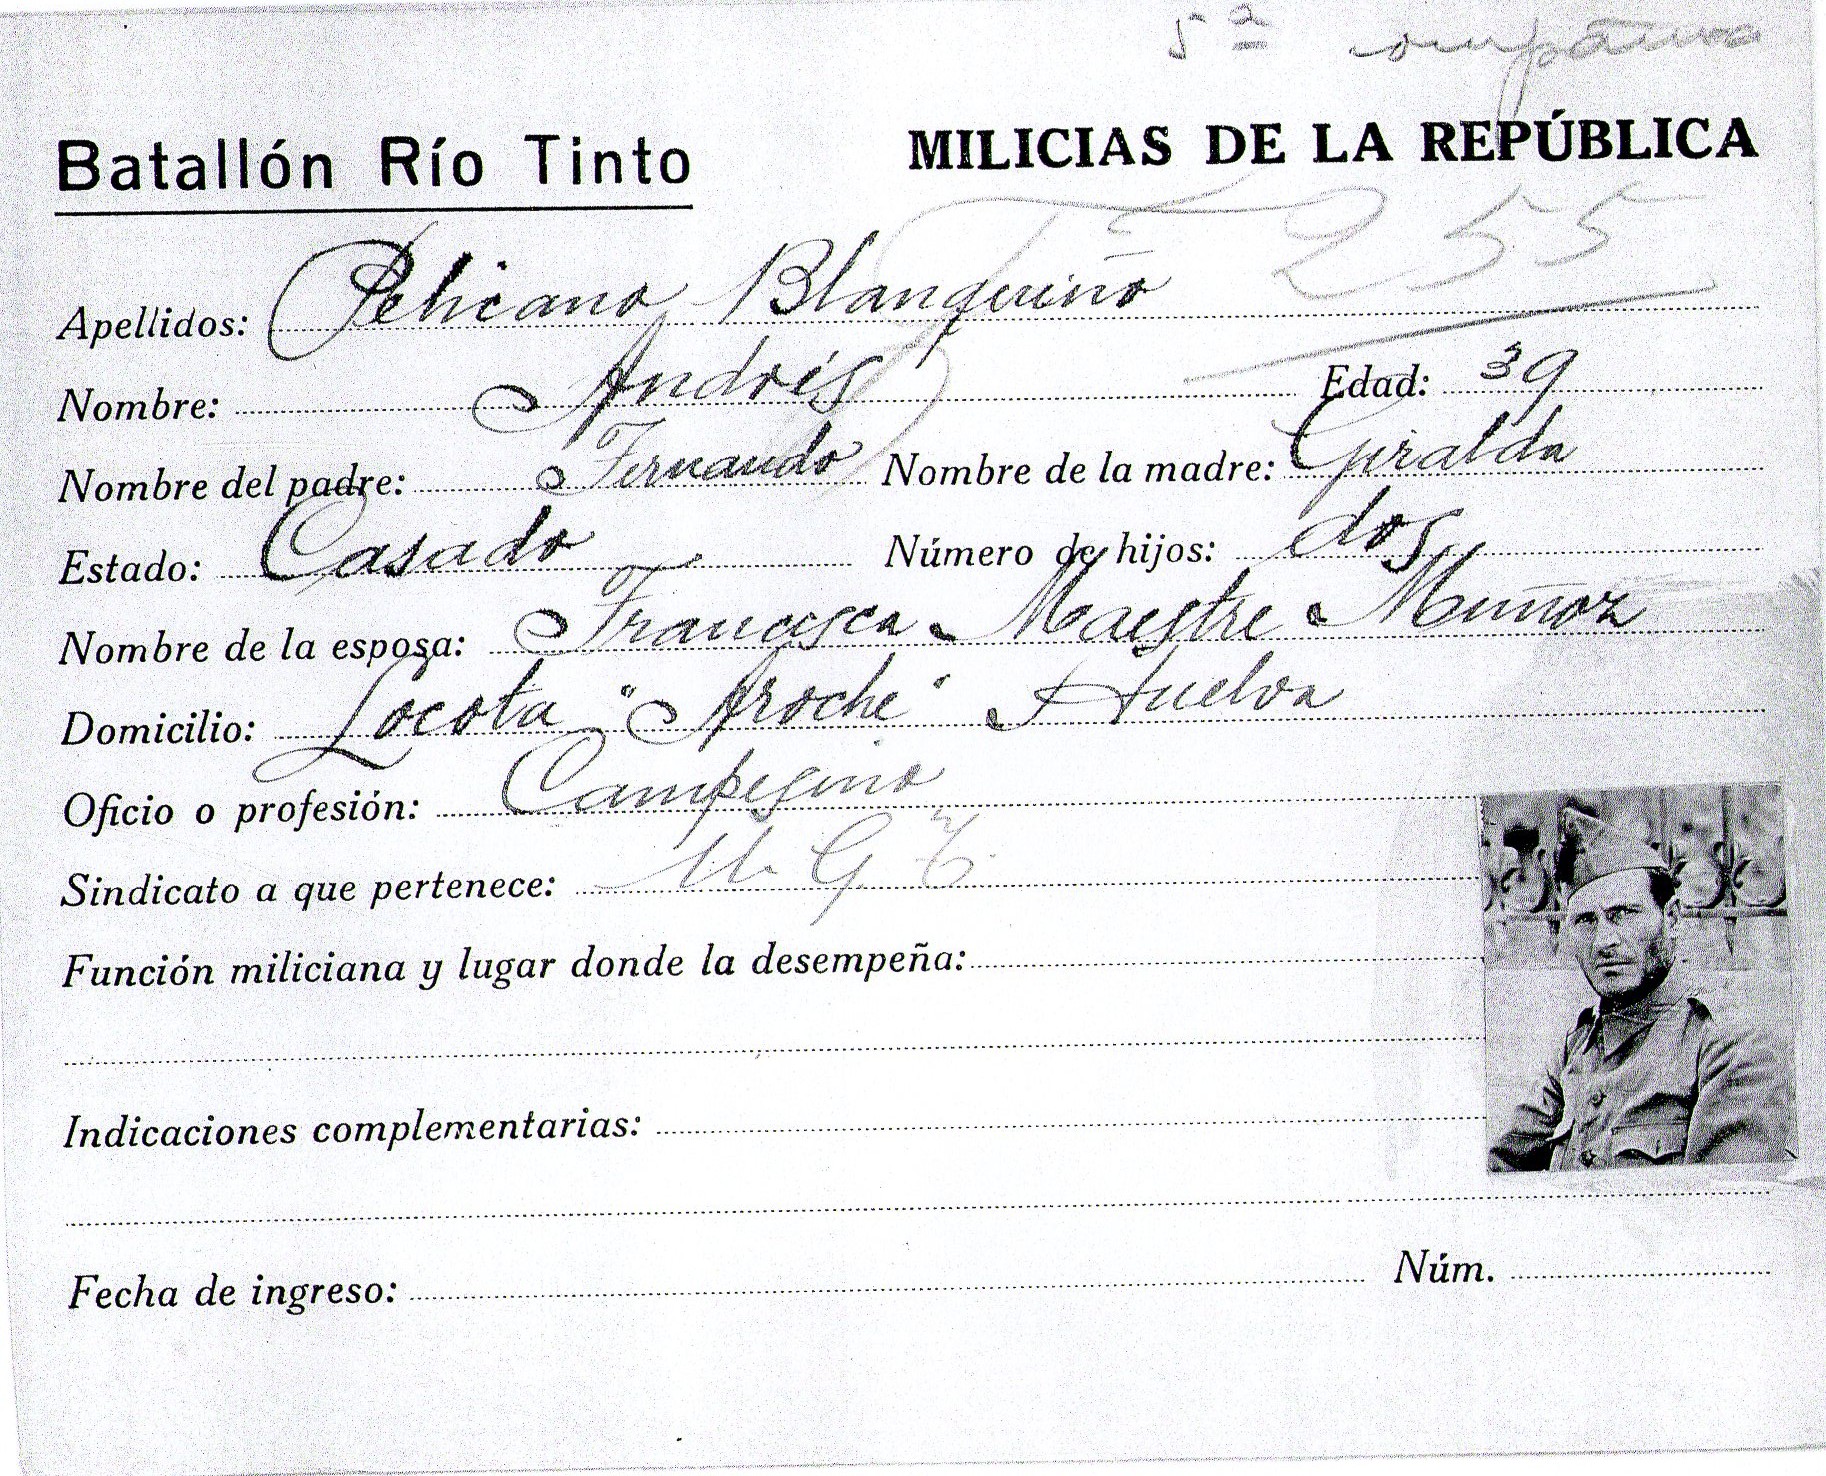 5ª compañia
Batallón Río Tinto MILICIAS DE LA REPÚBLICA
255
Apellidos: Pelicano Blanqueriño
Nombre: Andrés Edad: 39
Nombre del padre: Fernando Nombre de la madre: Giralda
Estado: Casado Número de hijos: dos
Nombre de la esposa: Francisca Maestre Muñoz
Domicilio: "Aroche" Huelva
Oficio o profesión: Campesino
Sindicato a que pertenece: U. G. T.
Función miliciana y lugar donde la desempeña:
Indicaciones complementarias:
Fecha de ingreso: Núm.